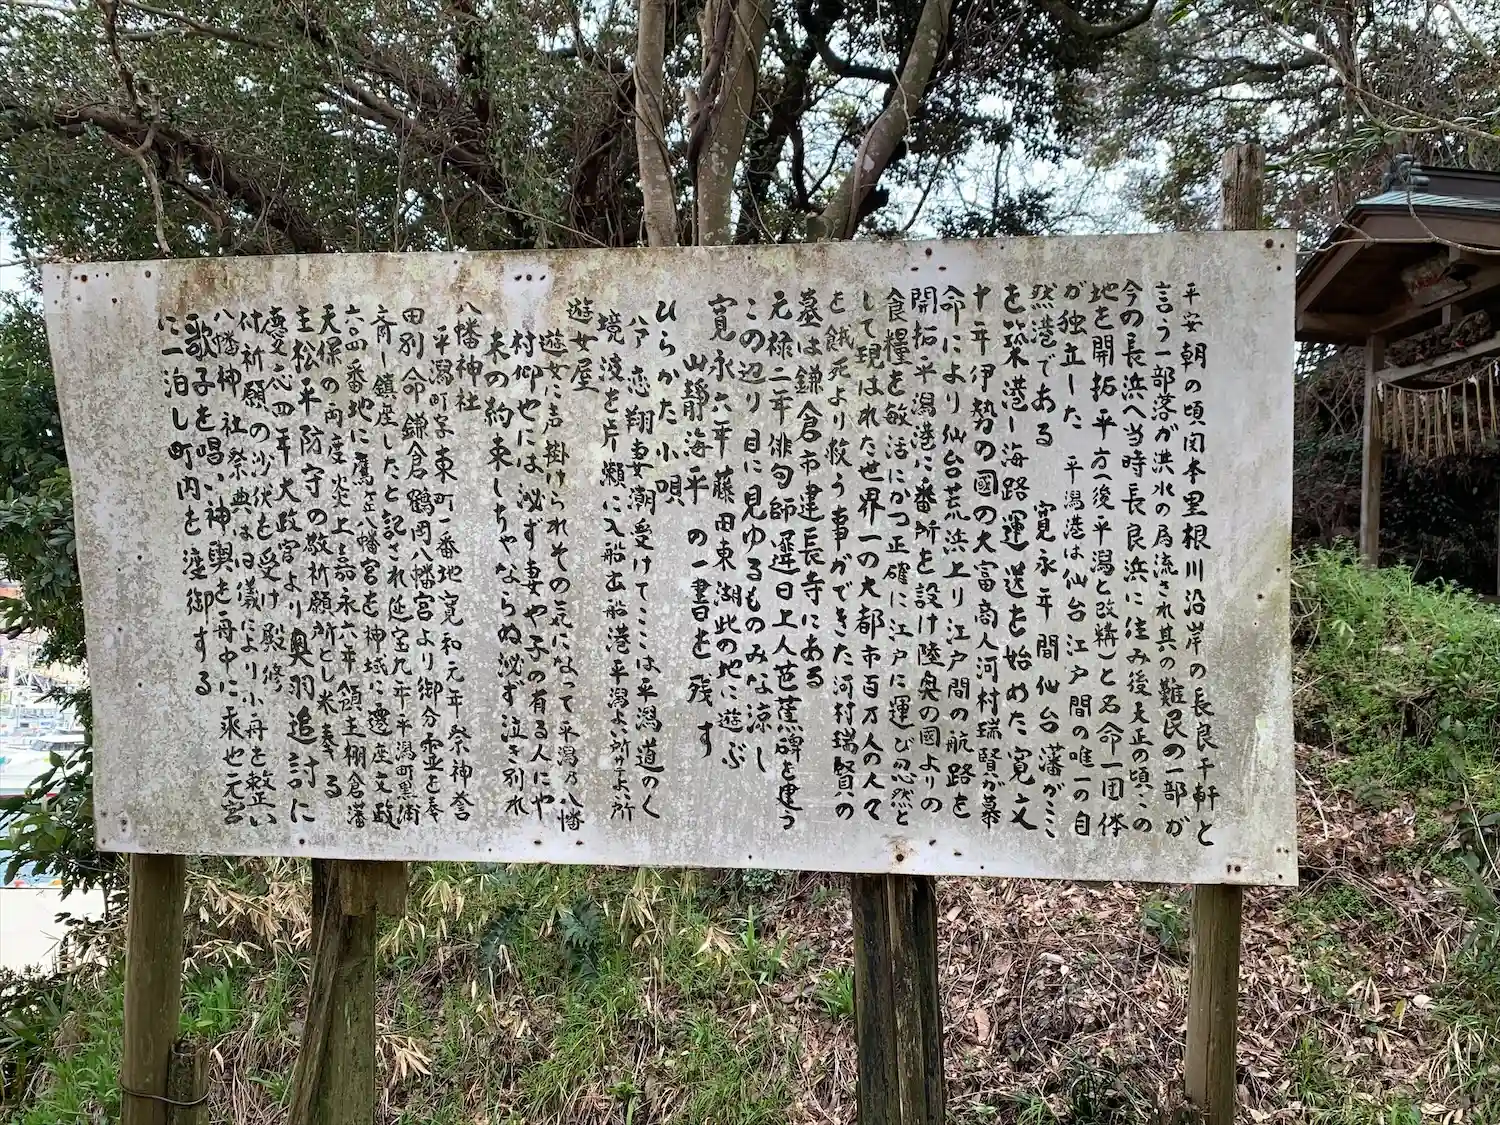 平安朝の頃関本里根川沿岸の長良千軒と
言う一部落が洪水の為流され其の難民の一部が
今の長浜へ当時長良浜に住み後大正の頃この
地を開拓平方(後平潟と改構)と名命一団体
が独立した 平潟港は仙台江戸間の唯一の自
然港である 寛永年間仙台藩がここ
を築港し海路運送を始めた寛文
十年伊勢の國の大富商人河村瑞賢が幕
命により仙台荒浜上り江戸間の航路を
開拓平潟港に番所を設け陸奥の國よりの
食糧を敏活にかつ正確に江戸に運び忽然と
して現はれた世界一の大都市百万人の人々
を餓死より救う事ができた河村瑞賢の
墓は鎌倉市建長寺にある
元禄二年俳句師 日上人芭蕉碑を建つ
この辺り目に見ゆるものみな涼し
寛永六年藤田東湖此の地に遊ぶ
山静海平の一書を残す
ひらかた小唄
ハア 恋翔妻潮受けてここは平潟道のく
境 波を片瀬に入船出船港平潟よい所サよい所
遊女屋
遊女に声掛けられその気になって平潟乃八幡
村仰せには必ず妻や子の有る人にや
末の約束しちゃならぬ必ず泣き別れ
八幡神社
平潟町字東町一番地寛和元年祭神誉
田別命鎌倉鶴岡八幡宮より御分霊を奉
斉し鎮座したと記され延宝九年平潟町黒浦
六〇四番地に鷹ヶ丘八幡宮を神域に遷座文政
天保の両度炎上嘉永六年領主棚倉藩
主松平防守の敬祈願所とし米奉る
慶応四年大政官より奥羽追討に
付祈願の沙伏を受け殿修
八幡神社祭典は旧儀により小舟を整い
歌子を唱い神輿を舟中に乗せ元宮
に一泊し町内を渡御する